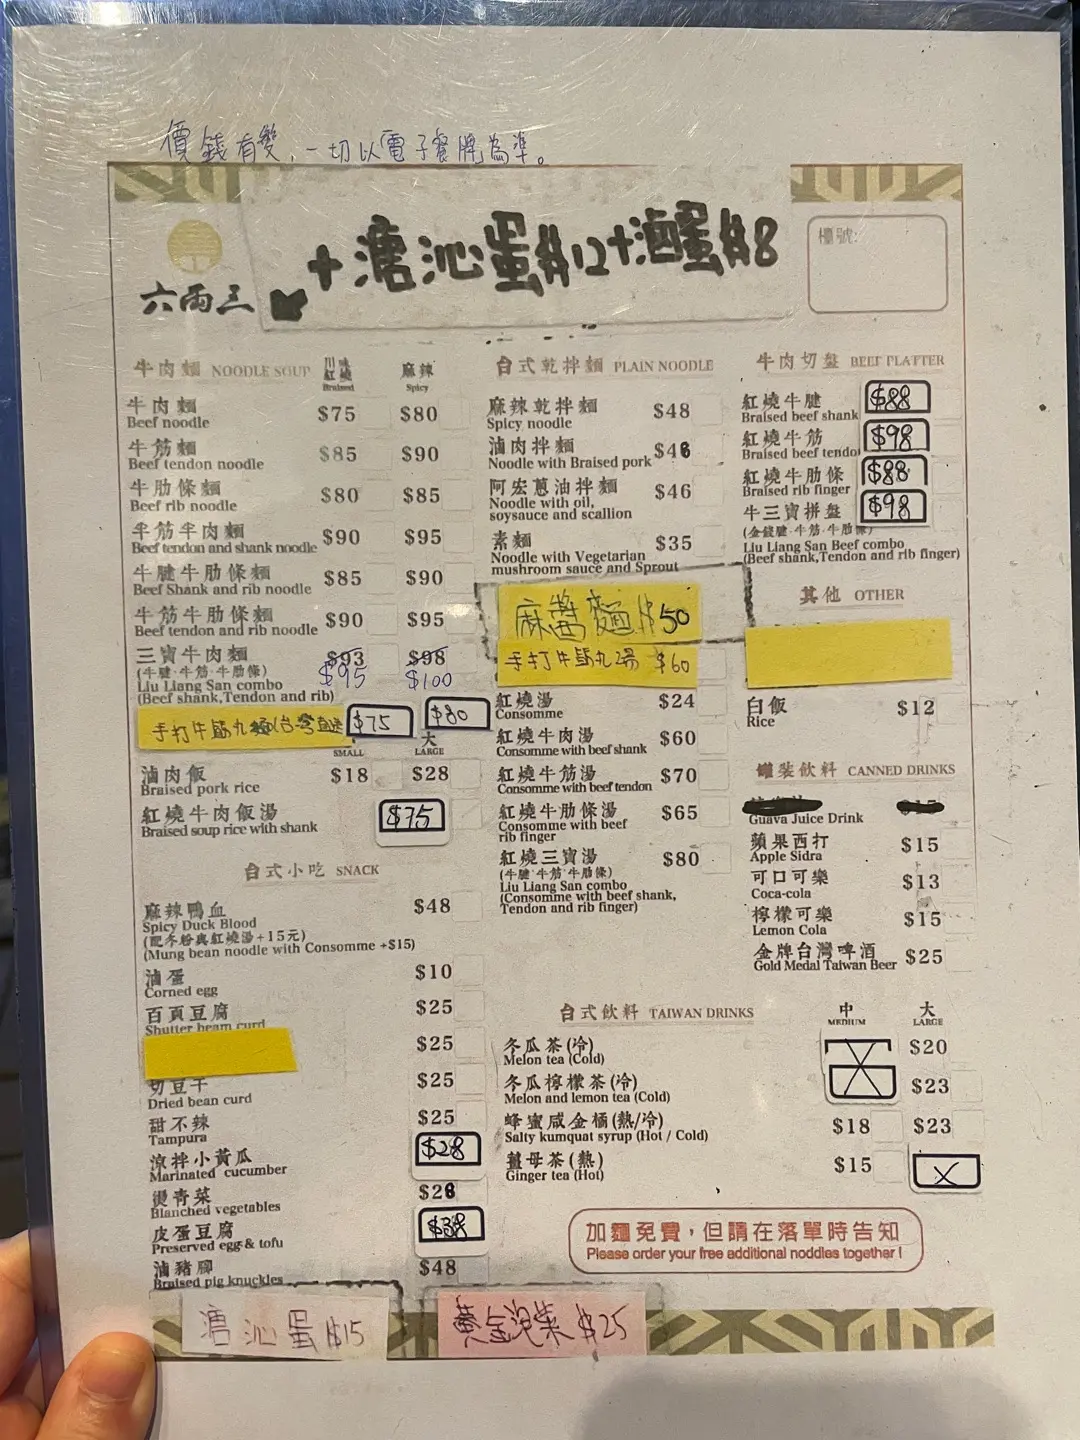 價錢有變，一切以電子餐牌為準。
六兩三
+溏沁蛋$12+滷蛋$8
檯號:
牛肉麵 NOODLE SOUP
川味紅燒 Braised
麻辣 Spicy
牛肉麵 $75 $80
Beef noodle
牛筋麵 $85 $90
Beef tendon noodle
牛肋條麵 $80 $85
Beef rib noodle
半筋半肉麵 $90 $95
Beef tendon and shank noodle
牛腱牛肋條麵 $85 $90
Beef Shank and rib noodle
牛筋牛肋條麵 $90 $95
Beef tendon and rib noodle
三寶牛肉麵 $93 $98
(牛腱·牛筋·牛肋條) $95 $100
Liu Liang San combo
(Beef shank,Tendon and rib)
手打牛筋丸麵 $75 $80
SMALL 大 LARGE
滷肉飯 $18 $28
Braised pork rice
紅燒牛肉飯湯 $75
Braised soup rice with shank
台式小吃 SNACK
麻辣鴨血 $48
Spicy Duck Blood
(配冬粉與紅燒湯+15元)
(Mung bean noodle with Consomme +$15)
滷蛋 $10
Corned egg
百頁豆腐 $25
Shutter beam curd
$25
切豆干 $25
Dried bean curd
甜不辣 $25
Tampura
涼拌小黃瓜 $28
Marinated cucumber
燙青菜 $28
Blanched vegetables
皮蛋豆腐 $38
Preserved egg & tofu
滷豬腳 $48
Braised pig knuckles
溏沁蛋 $15
黃金泡菜 $25
台式乾拌麵 PLAIN NOODLE
麻辣乾拌麵 $48
Spicy noodle
滷肉拌麵 $46
Noodle with Braised pork
阿宏蔥油拌麵 $46
Noodle with oil,
soysauce and scallion
素麵 $35
Noodle with Vegetarian
mushroom sauce and Sprout
麻醬麵 $50
手打牛筋丸湯 $60
紅燒湯 $24
Consomme
紅燒牛肉湯 $60
Consomme with beef shank
紅燒牛筋湯 $70
Consomme with beef tendon
紅燒牛肋條湯 $65
Consomme with beef
rib finger
紅燒三寶湯 $80
(牛腱·牛筋·牛肋條)
Liu Liang San combo
(Consomme with beef shank,
Tendon and rib finger)
牛肉切盤 BEEF PLATTER
紅燒牛腱 $88
Braised beef shank
紅燒牛筋 $98
Braised beef tendo
紅燒牛肋條 $88
Braised rib finger
牛三寶拼盤 $98
(金錢腱·牛筋·牛肋條)
Liu Liang San Beef combo
(Beef shank,Tendon and rib finger)
其他 OTHER
白飯 $12
Rice
罐裝飲料 CANNED DRINKS
Guava Juice Drink
蘋果西打 $15
Apple Sidra
可口可樂 $13
Coca-cola
檸檬可樂 $15
Lemon Cola
金牌台灣啤酒 $25
Gold Medal Taiwan Beer
台式飲料 TAIWAN DRINKS
中 MEDIUM
大 LARGE
冬瓜茶(冷) $20
Melon tea (Cold)
冬瓜檸檬茶(冷) $23
Melon and lemon tea (Cold)
蜂蜜咸金橘(熱/冷) $18 $23
Salty kumquat syrup (Hot / Cold)
薑母茶(熱) $15
Ginger tea (Hot)
加麵免費，但請在落單時告知
Please order your free additional noddles together !